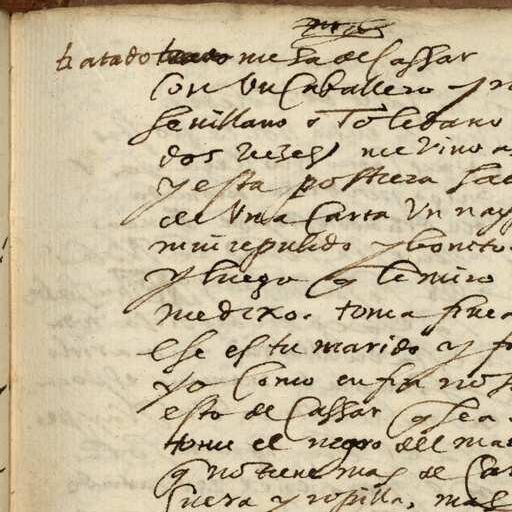 tratado me ha de cassar
con un Caballero y r
seuillano o Toledano
dos vezes me vino a
y esta postrera sac
de una Carta Un nay
mui repulido y bonito
y luego q le miro
me dixo. toma fine
ese es tu marido y fu
yo Como en fin no s
esto de Cassar q sea
tome el negro del ma
q no tiene mas de Ca
Cuera y ropilla, mas